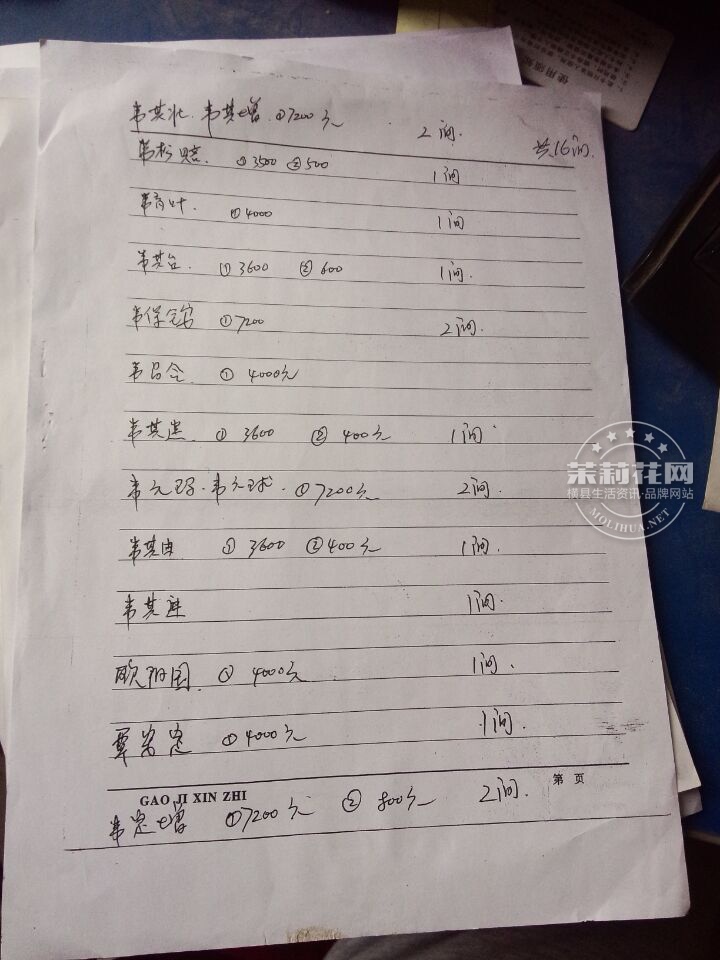 韦其北. 韦其增. ①7200元 2间. 共16间.
韦松赔. ①3500 ②500 1间
韦育叶. ①4000 1间
韦其台. ①3600 ②600 1间.
韦保安 ①7200 2间.
韦吕全. ① 4000元
韦其 ① 3600 ② 400元 1间.
韦元 . 韦元球. ①7200元 2间.
韦其由 ① 3600 ②400元 1间.
韦其进 1间.
欧阳国. ① 4000元. 1间.
覃 定 ①4000元 1间.
GAO JI XIN ZHI 第 页
韦定增 ①7200元 ② 800元 2间.
使用须知
茉莉花网
横县生活资讯·品牌网站
MOLIHUA.NET